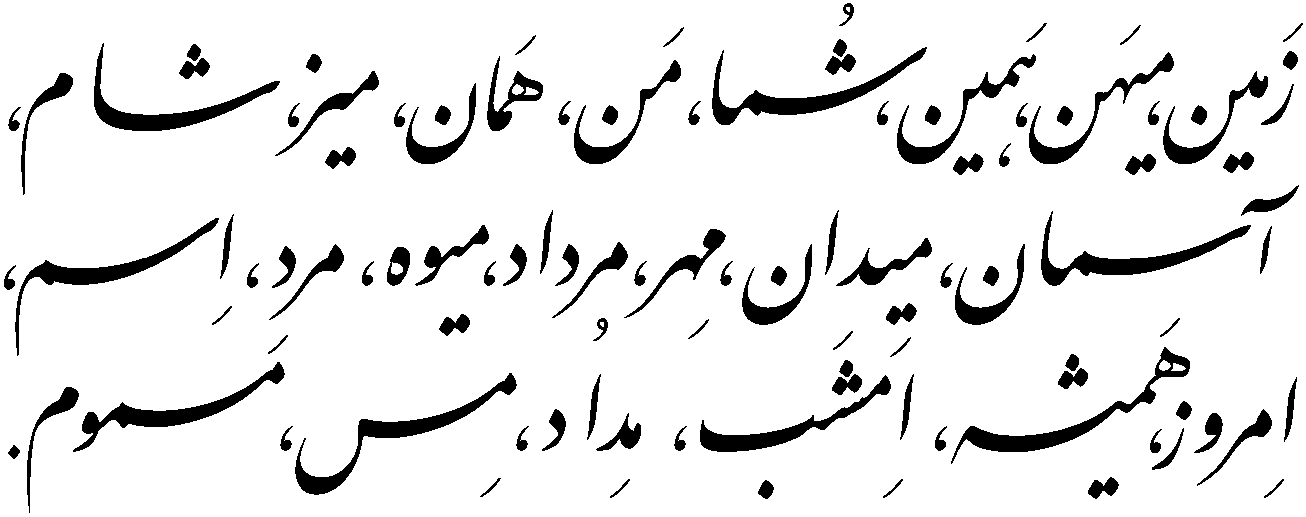 زَمین، میهَن، هَمین، شُما، مَن، هَمان، میز، شام،
آسمان، میدان، مِهر، مرداد، میوه، مرد، اِسم،
اِمروز، هَمیشه، اِمَشَب، مِدُاد، مِس، مَسموم.